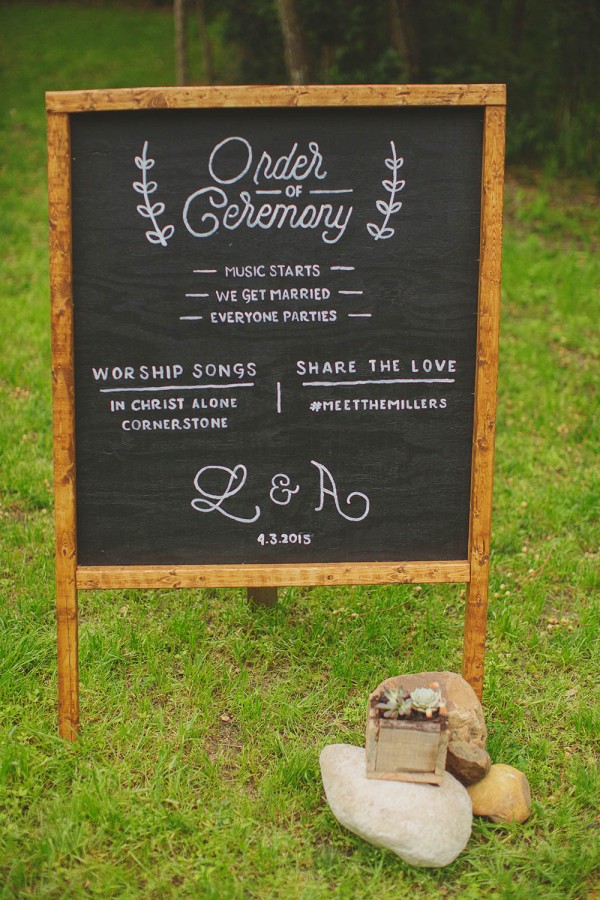 Order
OF
Ceremony
MUSIC STARTS
WE GET MARRIED
EVERYONE PARTIES
WORSHIP SONGS
IN CHRIST ALONE
CORNERSTONE
SHARE THE LOVE
#MEETTHEMILLERS
L & A
4.3.2015